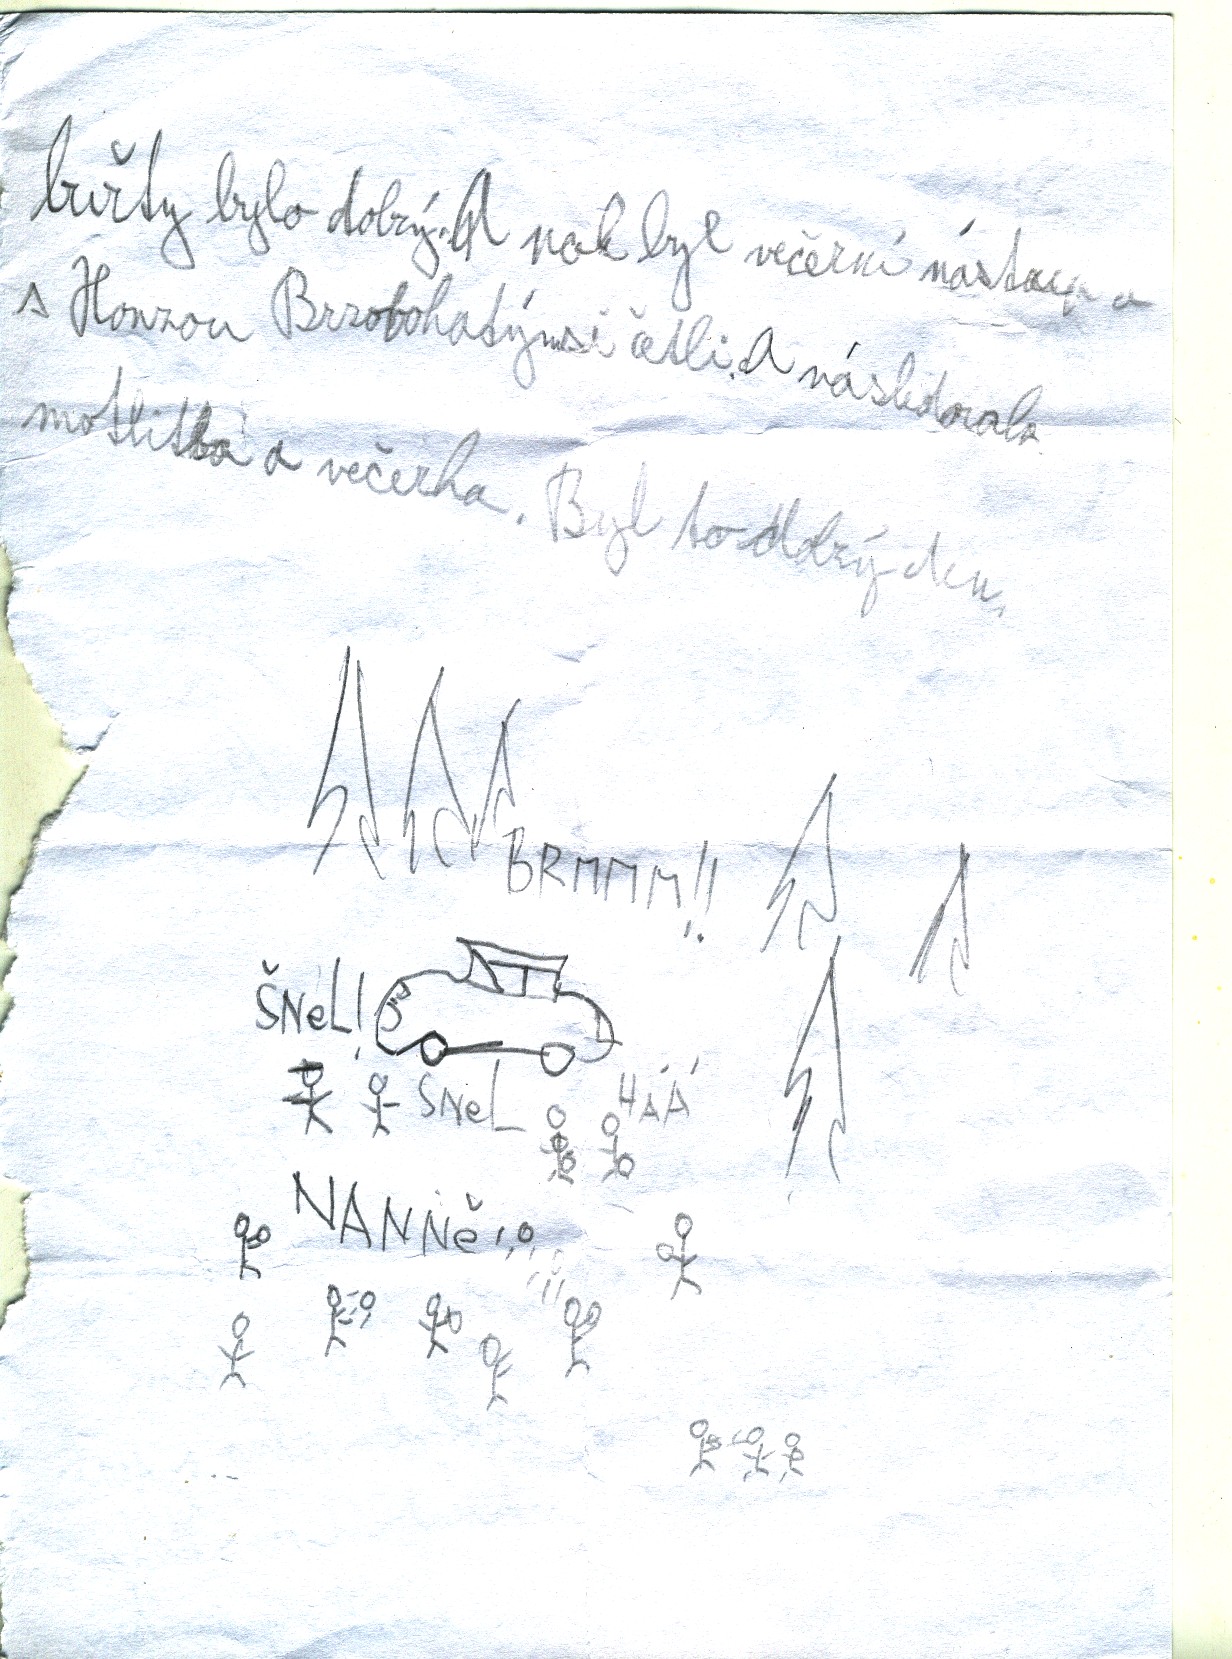 buřty bylo dobrý. A pak byl večerní nástup a
s Honzou Brzobohatým si četli. A následovala
motlitba a večerka. Byl to dobrý den.
BRMMM!!
ŠNeL!
ŠNeL HÁÁ
NANNě!!